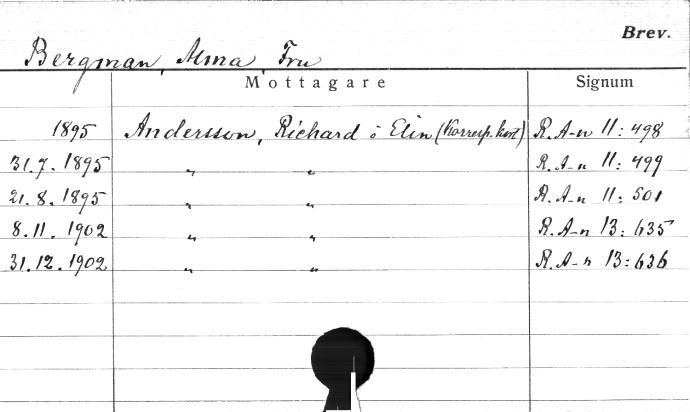 Brev.
Bergman, Alma, Fru
Mottagare Signum
1895 Andersson, Richard o Elin (Korresp. kort) R. A-n 11: 498
31.7. 1895 " " R. A-n 11: 499
21. 8. 1895 " " R. A-n 11: 501
8. 11. 1902 " " R. A-n 13: 635
31. 12. 1902 " " R. A-n 13: 636